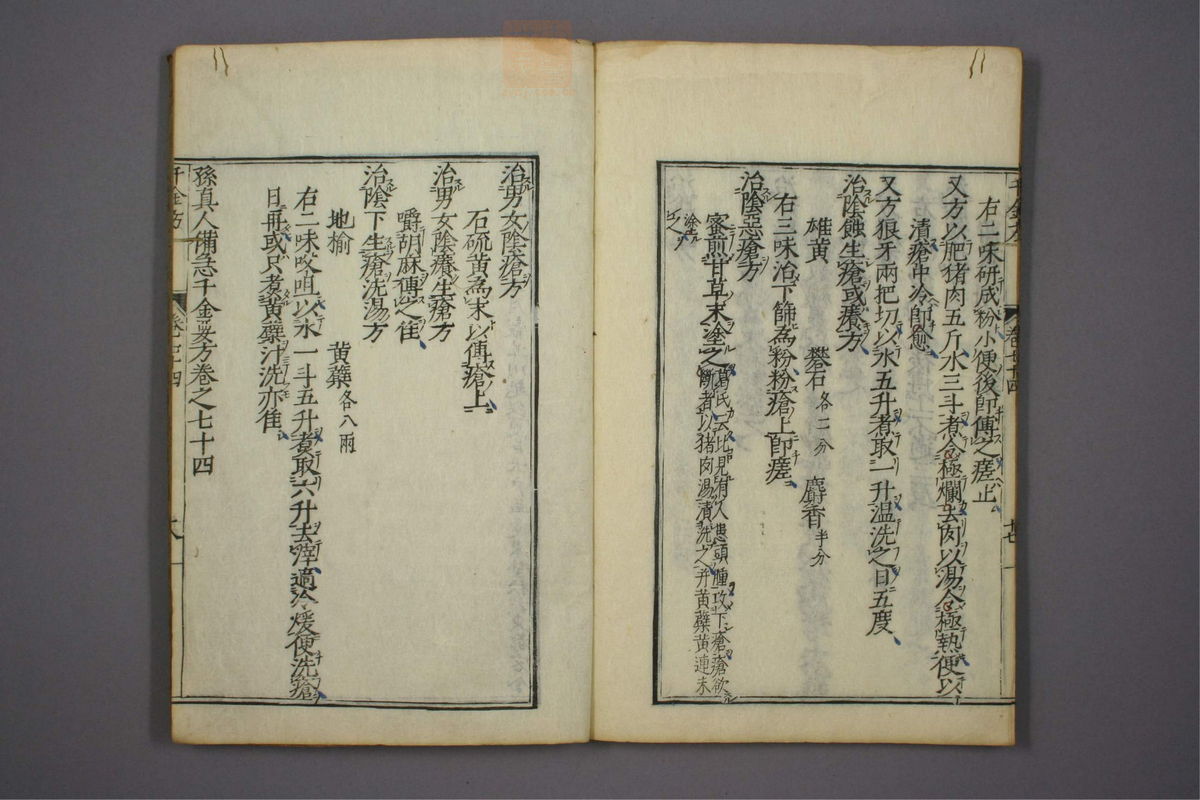 右二味研成粉小便後即傅之瘥止
又方以肥猪肉五斤水三斗煮令極爛去肉以湯令極熱便以
漬瘡中冷即愈
又方狼牙兩把切以水五升煮取一升温洗之日五度
治陰蝕生瘡或癢方
雄黄 礬石各二分 麝香半分
右三味治下篩為粉粉瘡上即瘥
治陰惡瘡方
蜜煎甘草末塗之葛氏云比見有人患頭腫攻下瘡瘡欲
斷者以猪肉湯漬洗之并黄蘗黄連末
塗之
治男女陰瘡方
石硫黄為末以傅瘡上
治男女陰癢生瘡方
嚼胡麻傅之佳
治陰下生瘡洗湯方
地榆 黄蘗各八兩
右二味㕮咀以水一斗五升煮取六升去滓適冷煖便洗瘡
日再或只煮黄蘗汁洗亦佳
孫真人備急千金要方卷之七十四